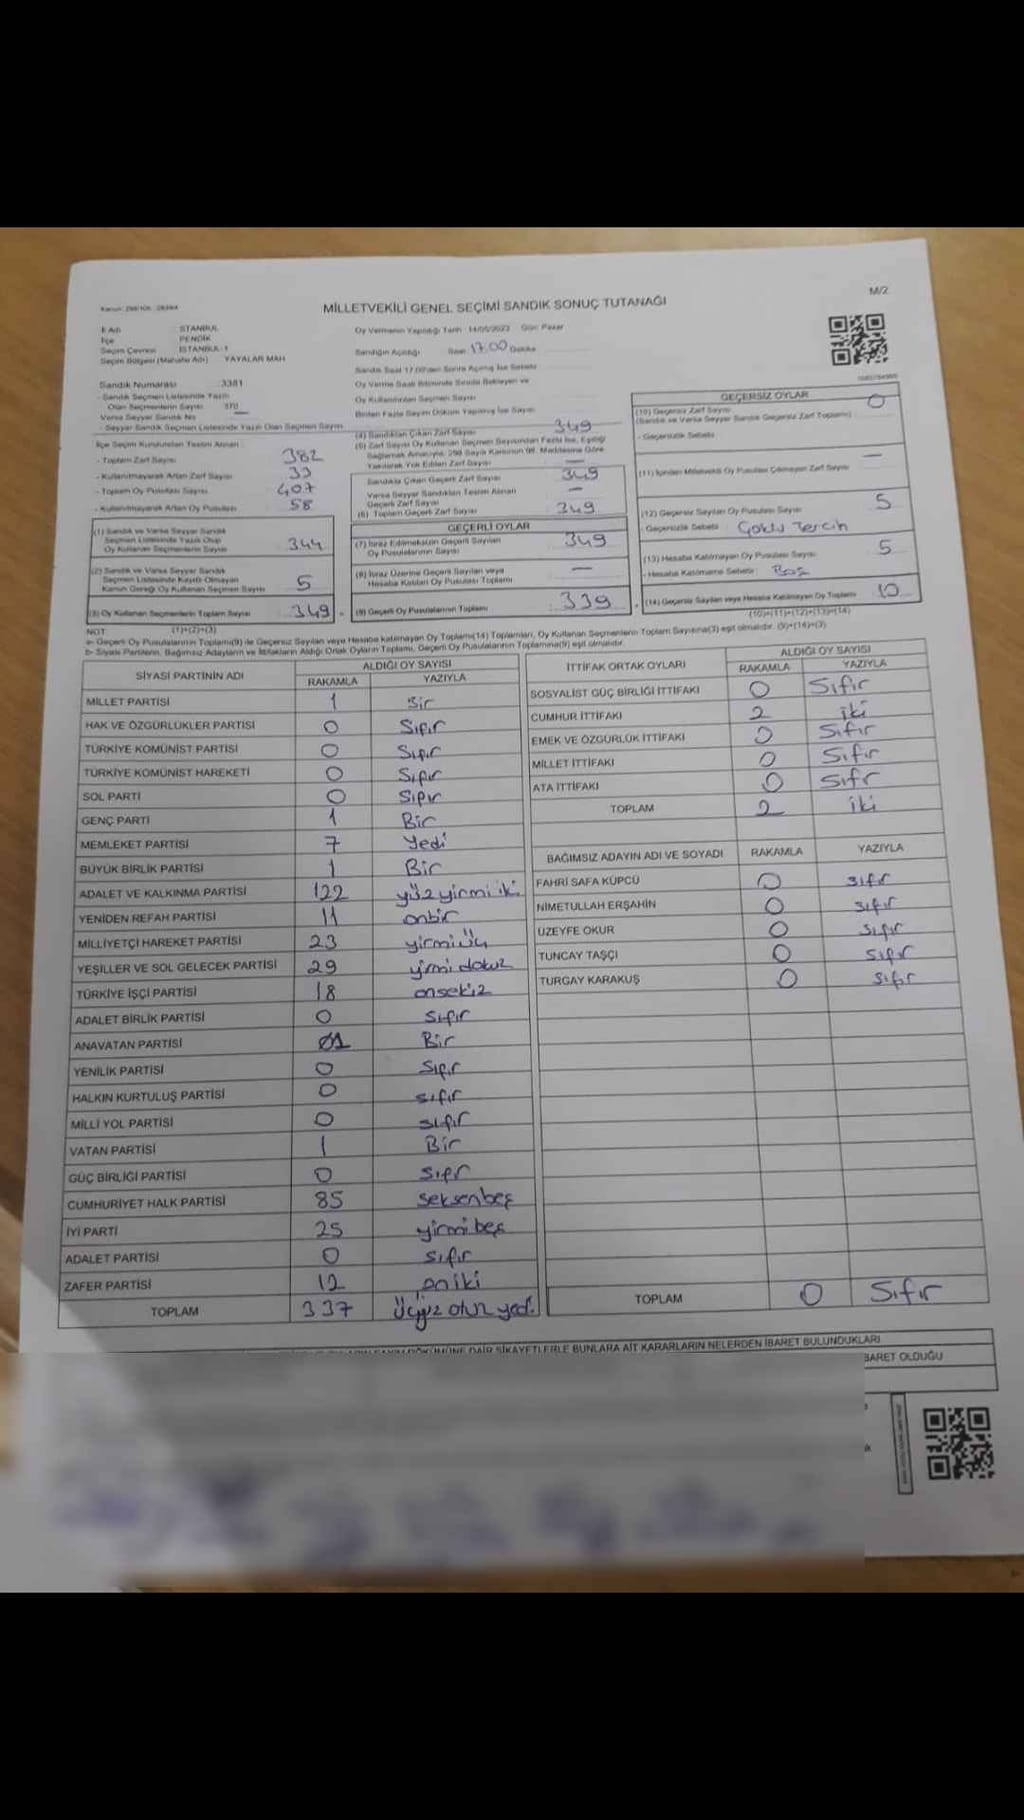 M/2
MİLLETVEKİLİ GENEL SEÇİMİ SANDIK SONUÇ TUTANAĞI
İl Adı İSTANBUL
İlçe PENDİK
Seçim Çevresi İSTANBUL-1
Seçim Bölgesi (Mahalle Adı) YAYALAR MAH
Oy Vermenin Yapıldığı Tarih 14/05/2023 Gün: Pazar
Sandığın Açıldığı Saat 17:00 Dakika
Sandık Saat 17:00'den Sonra Açılmış İse Sebebi
Oy Verme Saati Bitiminde Sırada Bekleyen ve
Oy Kullandırılan Seçmen Sayısı
Birden Fazla Sayım Döküm Yapılmış İse Sayısı
Sandık Numarası 3381
- Sandık Seçmen Listesinde Yazılı
Olan Seçmenlerin Sayısı 370
Varsa Seyyar Sandık No —
- Seyyar Sandık Seçmen Listesinde Yazılı Olan Seçmen Sayısı
İlçe Seçim Kurulundan Teslim Alınan
- Toplam Zarf Sayısı 382
- Kullanılmayarak Artan Zarf Sayısı 33
- Toplam Oy Pusulası Sayısı 407
- Kullanılmayarak Artan Oy Pusulası 58
(1) Sandık ve Varsa Seyyar Sandık
Seçmen Listesinde Yazılı Olup
Oy Kullanan Seçmenlerin Sayısı 344
(2) Sandık ve Varsa Seyyar Sandık
Seçmen Listesinde Kayıtlı Olmayan
Kanun Gereği Oy Kullanan Seçmen Sayısı 5
(3) Oy Kullanan Seçmenlerin Toplam Sayısı 349
(1)+(2)=(3)
(4) Sandıktan Çıkan Zarf Sayısı 349
(5) Zarf Sayısı Oy Kullanan Seçmen Sayısından Fazla İse, Eşitliği
Sağlamak Amacıyla, 298 Sayılı Kanunun 98. Maddesine Göre
Yakılarak Yok Edilen Zarf Sayısı —
Sandıkta Çıkan Geçerli Zarf Sayısı 349
Varsa Seyyar Sandıktan Teslim Alınan
Geçerli Zarf Sayısı —
(6) Toplam Geçerli Zarf Sayısı 349
GEÇERLİ OYLAR
(7) İtiraz Edilmeksizin Geçerli Sayılan
Oy Pusulalarının Sayısı 349
(8) İtiraz Üzerine Geçerli Sayılan veya
Hesaba Katılan Oy Pusulası Toplamı —
(9) Geçerli Oy Pusulalarının Toplamı 339
GEÇERSİZ OYLAR
(10) Geçersiz Zarf Sayısı 0
(Sandık ve Varsa Seyyar Sandık Geçersiz Zarf Toplamı)
- Geçersizlik Sebebi
(11) İçinden Milletvekili Oy Pusulası Çıkmayan Zarf Sayısı —
(12) Geçersiz Sayılan Oy Pusulası Sayısı 5
- Geçersizlik Sebebi Çoklu Tercih
(13) Hesaba Katılmayan Oy Pusulası Sayısı 5
- Hesaba Katılmama Sebebi Boş
(14) Geçersiz Sayılan veya Hesaba Katılmayan Oy Toplamı 10
(10)+(11)+(12)+(13)=(14)
NOT
a- Geçerli Oy Pusulalarının Toplamı(9) ile Geçersiz Sayılan veya Hesaba katılmayan Oy Toplamı(14) Toplamları, Oy Kullanan Seçmenlerin Toplam Sayısına(3) eşit olmalıdır. (9)+(14)=(3)
b- Siyasi Partilerin, Bağımsız Adayların ve İttifakların Aldığı Ortak Oyların Toplamı, Geçerli Oy Pusulalarının Toplamına(9) eşit olmalıdır.
SİYASİ PARTİNİN ADI ALDIĞI OY SAYISI
RAKAMLA YAZIYLA
MİLLET PARTİSİ 1 Bir
HAK VE ÖZGÜRLÜKLER PARTİSİ 0 Sıfır
TÜRKİYE KOMÜNİST PARTİSİ 0 Sıfır
TÜRKİYE KOMÜNİST HAREKETİ 0 Sıfır
SOL PARTİ 0 Sıfır
GENÇ PARTİ 1 Bir
MEMLEKET PARTİSİ 7 Yedi
BÜYÜK BİRLİK PARTİSİ 1 Bir
ADALET VE KALKINMA PARTİSİ 122 yüz yirmi iki
YENİDEN REFAH PARTİSİ 11 onbir
MİLLİYETÇİ HAREKET PARTİSİ 23 yirmiüç
YEŞİLLER VE SOL GELECEK PARTİSİ 29 yirmi dokuz
TÜRKİYE İŞÇİ PARTİSİ 18 onsekiz
ADALET BİRLİK PARTİSİ 0 Sıfır
ANAVATAN PARTİSİ 01 Bir
YENİLİK PARTİSİ 0 Sıfır
HALKIN KURTULUŞ PARTİSİ 0 sıfır
MİLLİ YOL PARTİSİ 0 sıfır
VATAN PARTİSİ 1 Bir
GÜÇ BİRLİĞİ PARTİSİ 0 Sıfır
CUMHURİYET HALK PARTİSİ 85 seksenbeş
İYİ PARTİ 25 yirmibeş
ADALET PARTİSİ 0 sıfır
ZAFER PARTİSİ 12 oniki
TOPLAM 337 Üçyüz otuz yedi
İTTİFAK ORTAK OYLARI ALDIĞI OY SAYISI
RAKAMLA YAZIYLA
SOSYALİST GÜÇ BİRLİĞİ İTTİFAKI 0 Sıfır
CUMHUR İTTİFAKI 2 iki
EMEK VE ÖZGÜRLÜK İTTİFAKI 0 Sıfır
MİLLET İTTİFAKI 0 Sıfır
ATA İTTİFAKI 0 Sıfır
TOPLAM 2 iki
BAĞIMSIZ ADAYIN ADI VE SOYADI RAKAMLA YAZIYLA
FAHRİ SAFA KÜPCÜ 0 sıfır
NİMETULLAH ERŞAHİN 0 sıfır
UZEYFE OKUR 0 sıfır
TUNCAY TAŞÇI 0 sıfır
TURGAY KARAKUŞ 0 sıfır
TOPLAM 0 Sıfır
DAİR ŞİKAYETLERLE BUNLARA AİT KARARLARIN NELERDEN İBARET BULUNDUKLARI
İBARET OLDUĞU